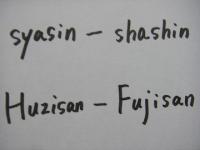 syasin – shashin
Huzisan – Fujisan